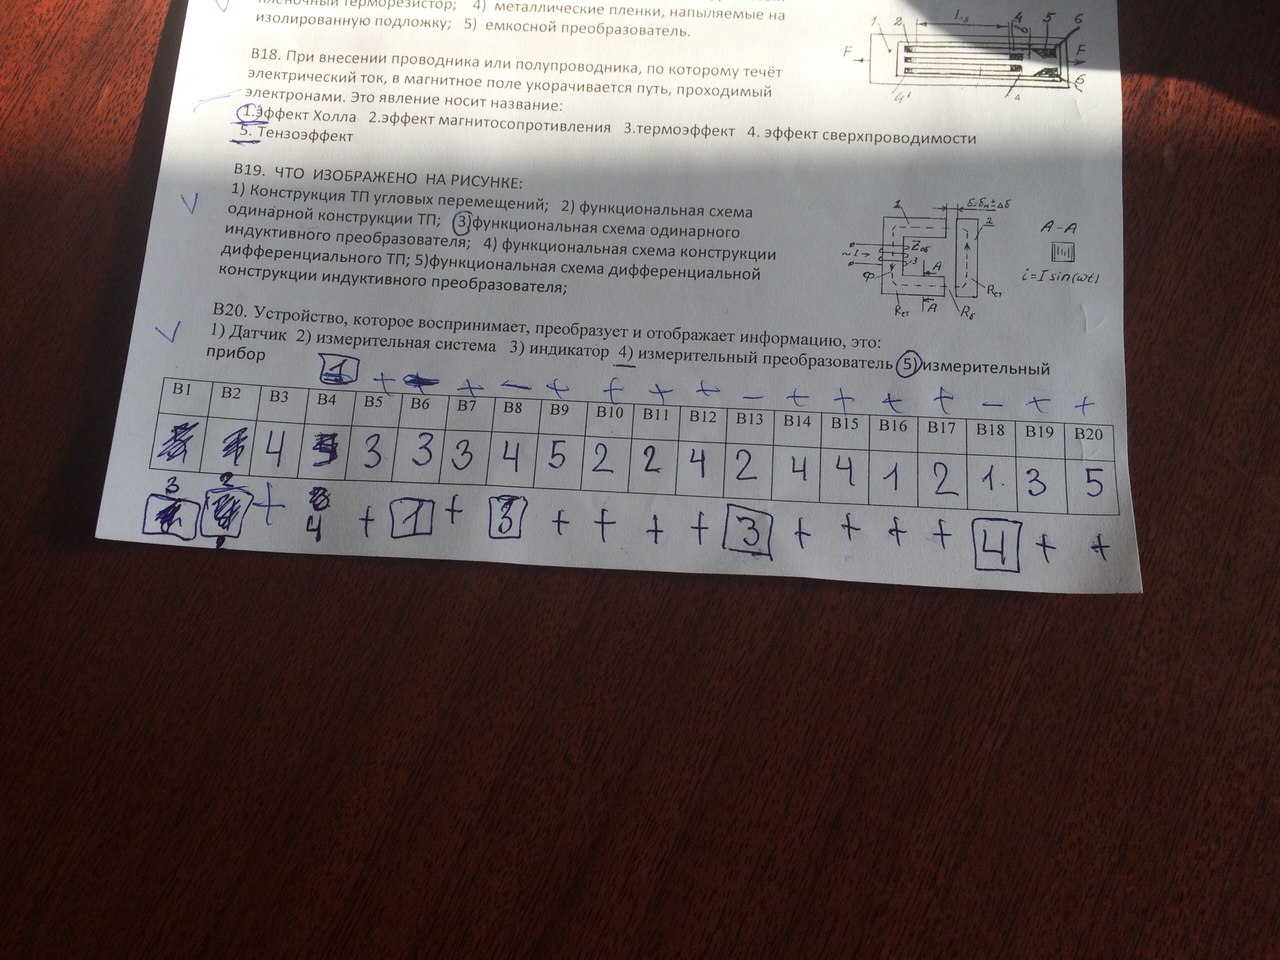 пленочный терморезистор; 4) металлические пленки, напыляемые на
изолированную подложку; 5) емкосной преобразователь.
1 2 4 5 6
F F
4' 6
В18. При внесении проводника или полупроводника, по которому течёт
электрический ток, в магнитное поле укорачивается путь, проходимый
электронами. Это явление носит название:
1.Эффект Холла 2.эффект магнитосопротивления 3.термоэффект 4. эффект сверхпроводимости
5. Тензоэффект
В19. ЧТО ИЗОБРАЖЕНО НА РИСУНКЕ:
1) Конструкция ТП угловых перемещений; 2) функциональная схема
одинарной конструкции ТП; 3)функциональная схема одинарного
индуктивного преобразователя; 4) функциональная схема конструкции
дифференциального ТП; 5)функциональная схема дифференциальной
конструкции индуктивного преобразователя;
1 δ=δн±Δδ 2
А-А
Zоб
~i 3
Ф А
i=I sin(ωt)
Rст А Rδ Rст
В20. Устройство, которое воспринимает, преобразует и отображает информацию, это:
1) Датчик 2) измерительная система 3) индикатор 4) измерительный преобразователь 5)измерительный
прибор
1 + + − + + + + − + + + + − + +
В1 В2 В3 В4 В5 В6 В7 В8 В9 В10 В11 В12 В13 В14 В15 В16 В17 В18 В19 В20
4 3 3 3 4 5 2 2 4 2 4 4 1 2 1. 3 5
3 2 + 4 + 1 + 3 + + + + 3 + + + + 4 + +